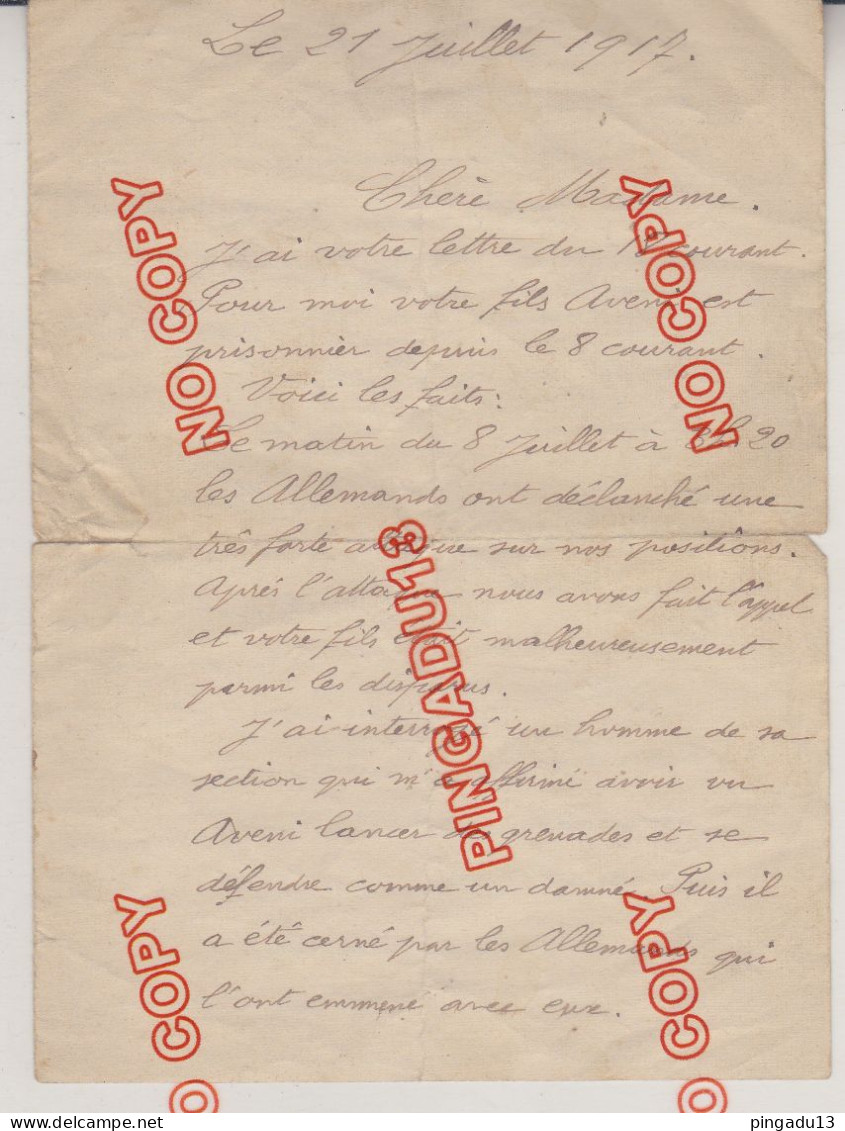 Le 21 Juillet 1917.
Chère Madame.
J'ai votre lettre du courant.
Pour moi votre fils Aveni est
prisonnier depuis le 8 courant.
Voici les faits:
Le matin du 8 Juillet à 20
les Allemands ont déclanché une
très forte attaque sur nos positions.
Après l'attaque nous avons fait l'appel
et votre fils était malheureusement
parmi les disparus.
J'ai interrogé un homme de sa
section qui m'a affirmé avoir vu
Aveni lancer des grenades et se
défendre comme un damné. Puis il
a été cerné par les Allemands qui
l'ont emmené avec eux.
NO COPY
NO COPY
PINGADU13
NO COPY
NO COPY
Delcampe.net
pingadu13